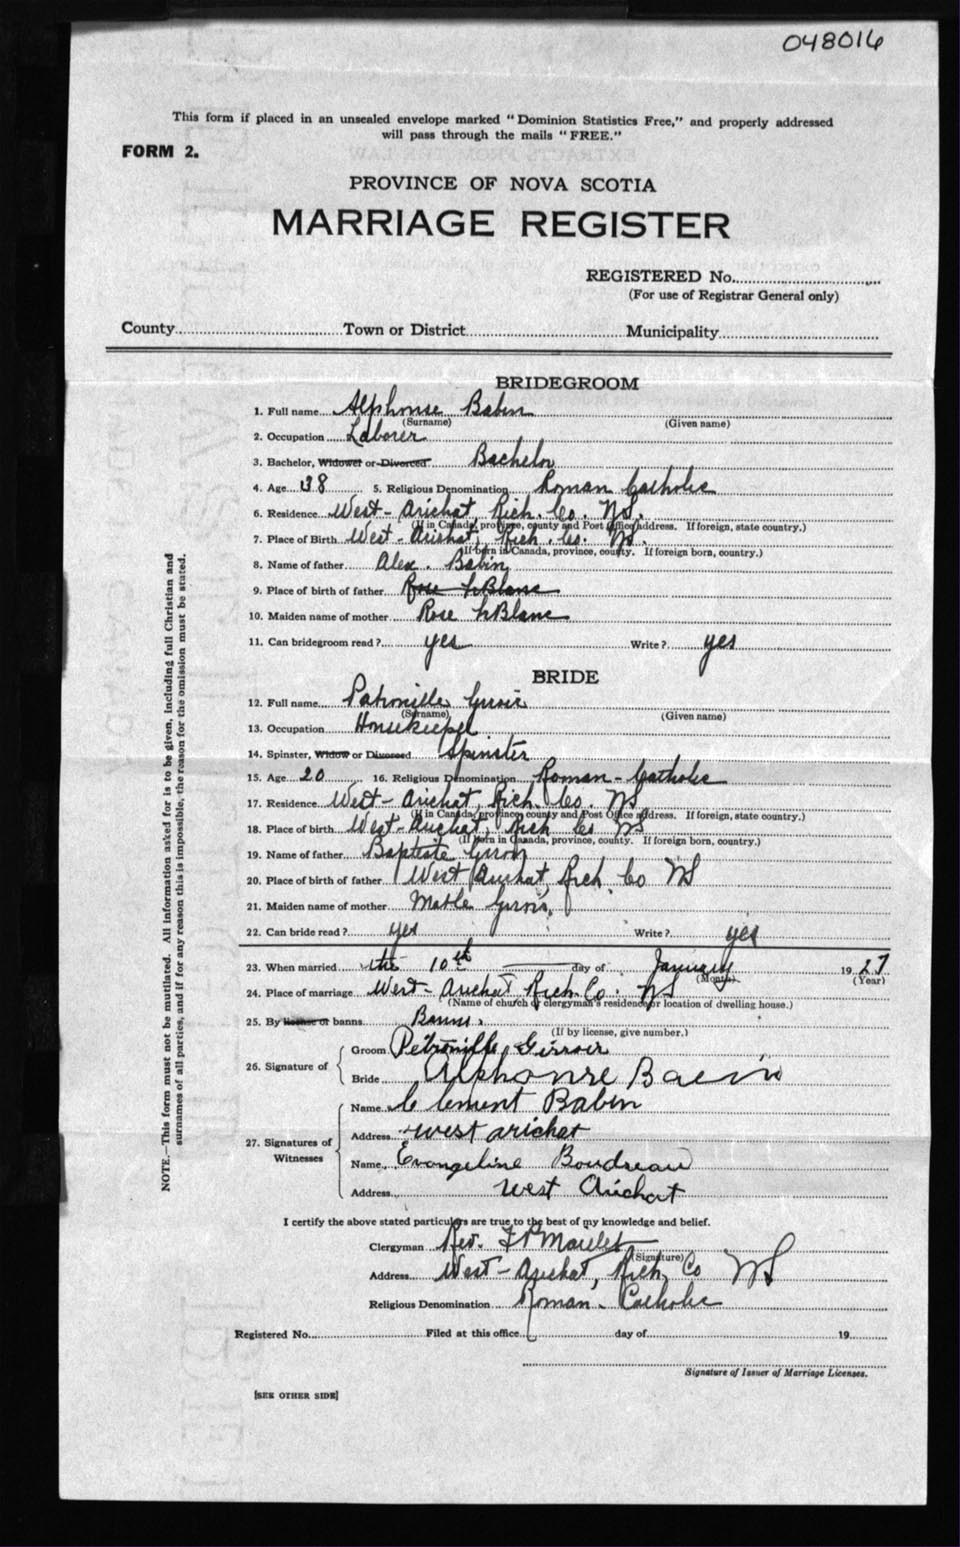 048016
This form if placed in an unsealed envelope marked "Dominion Statistics Free," and properly addressed
will pass through the mails "FREE."
FORM 2.
PROVINCE OF NOVA SCOTIA
MARRIAGE REGISTER
REGISTERED No.
(For use of Registrar General only)
County Town or District Municipality
BRIDEGROOM
1. Full name Alphonse Babin
(Surname) (Given name)
2. Occupation Laborer
3. Bachelor, Widower or Divorced Bachelor
4. Age 38 5. Religious Denomination Roman Catholic
6. Residence West-Arichat, Rich. Co. NS.
(If in Canada, province, county and Post Office address. If foreign, state country.)
7. Place of Birth West-Arichat, Rich. Co. NS.
(If born in Canada, province, county. If foreign born, country.)
8. Name of father Alex. Babin
9. Place of birth of father Rose LeBlanc
10. Maiden name of mother Rose LeBlanc
11. Can bridegroom read? yes Write? yes
BRIDE
12. Full name Petronille
(Surname) (Given name)
13. Occupation Housekeeper
14. Spinster, Widow or Divorced Spinster
15. Age 20 16. Religious Denomination Roman-Catholic
17. Residence West-Arichat, Rich. Co. NS
(If in Canada, province, county and Post Office address. If foreign, state country.)
18. Place of birth West-Arichat, Rich Co NS
(If born in Canada, province, county. If foreign born, country.)
19. Name of father Baptiste
20. Place of birth of father West Arichat, Rich. Co NS
21. Maiden name of mother
22. Can bride read? yes Write? yes
23. When married the 10th day of January 1927
(Month) (Year)
24. Place of marriage West-Arichat Rich. Co. NS
(Name of church or clergyman's residence or location of dwelling house.)
25. By license or banns Banns.
(If by license, give number.)
26. Signature of
Groom Petronille Girroir
Bride Alphonse Babin
27. Signatures of Witnesses
Name Clement Babin
Address west arichat
Name Evangeline Boudreau
Address west Arichat
I certify the above stated particulars are true to the best of my knowledge and belief.
Clergyman Rev.
(Signature)
Address West-Arichat, Rich, Co NS
Religious Denomination Roman-Catholic
Registered No. Filed at this office day of 19
Signature of Issuer of Marriage Licenses.
[SEE OTHER SIDE]
NOTE.—This form must not be mutilated. All information asked for is to be given, including full Christian and
surnames of all parties, and if for any reason this is impossible, the reason for the omission must be stated.